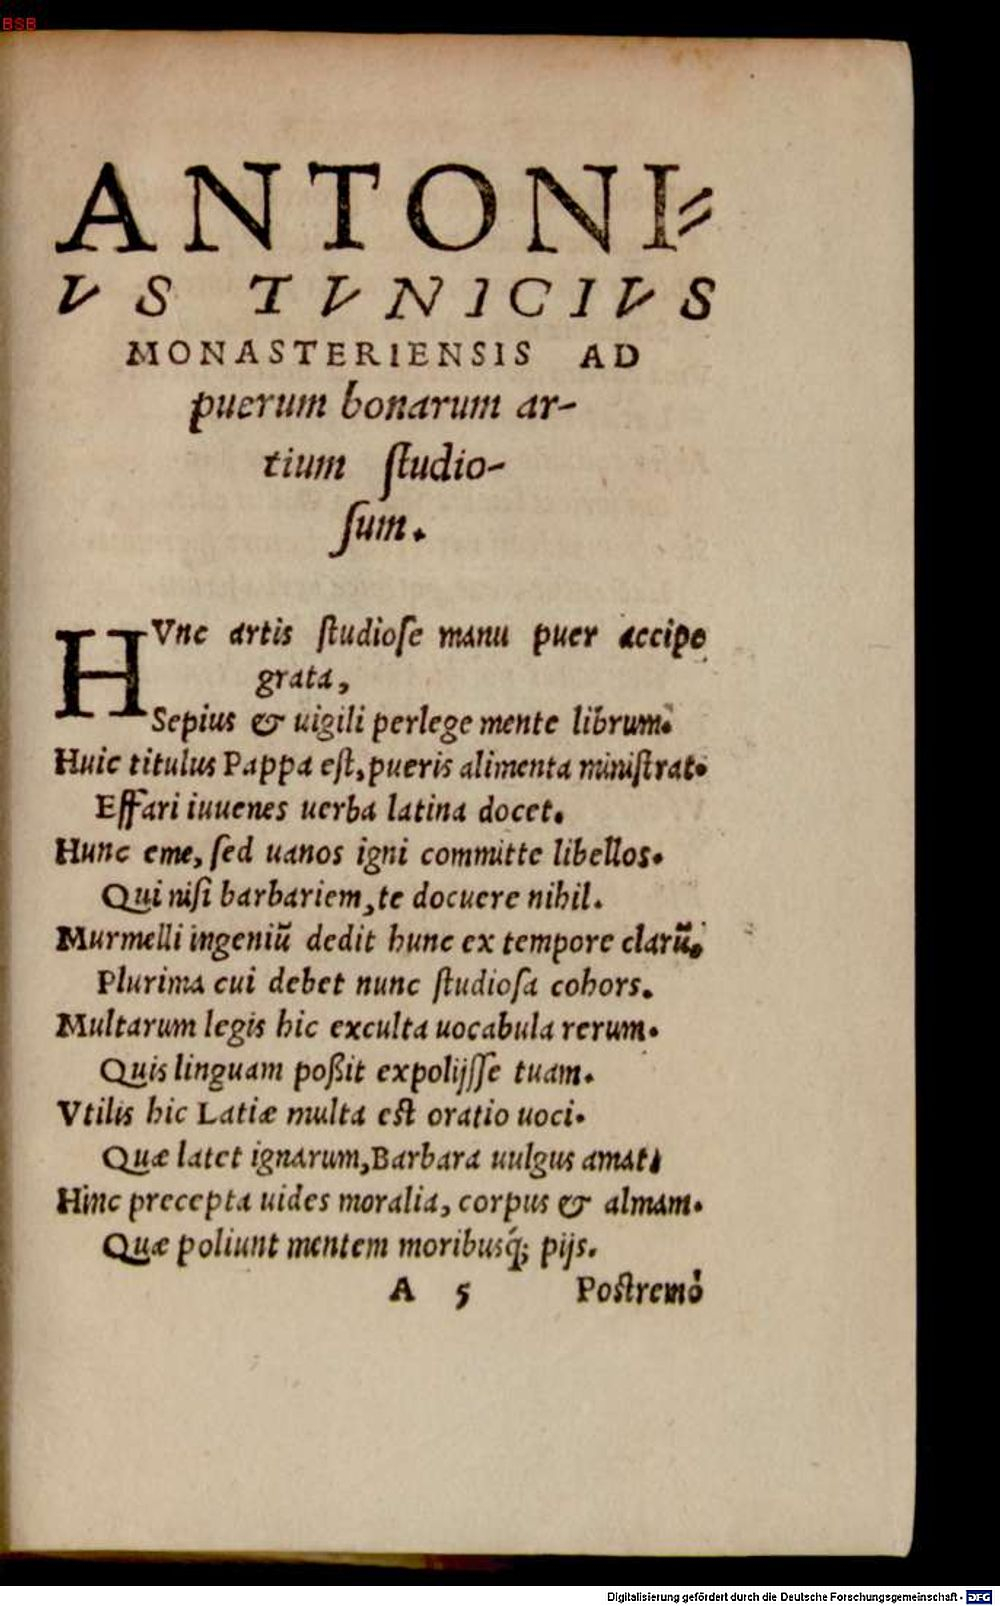 BSB
ANTONI⸗
VS TVNICIVS
MONASTERIENSIS AD
puerum bonarum ar-
tium ſtudio-
ſum.
HVnc artis ſtudioſe manu puer accipe
grata,
Sepius & uigili perlege mente librum.
Huic titulus Pappa eſt, pueris alimenta miniſtrat.
Effari iuuenes uerba latina docet.
Hunc eme, ſed uanos igni committe libellos.
Qui niſi barbariem, te docuere nihil.
Murmelli ingeniũ dedit hunc ex tempore clarũ.
Plurima cui debet nunc ſtudioſa cohors.
Multarum legis hic exculta uocabula rerum.
Quis linguam poßit expolijſſe tuam.
Vtilis hic Latiæ multa eſt oratio uoci.
Quæ latet ignarum, Barbara uulgus amat.
Hinc precepta uides moralia, corpus & almam.
Quæ poliunt mentem moribusq́; pijs.
A 5 Poſtremò
Digitalisierung gefördert durch die Deutsche Forschungsgemeinschaft - DFG